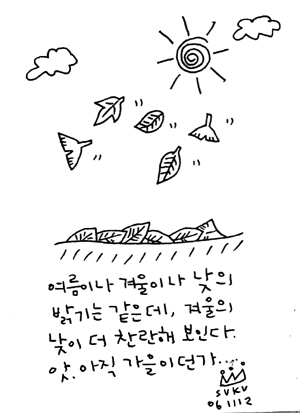 여름이나 겨울이나 낮의
밝기는 같은데, 겨울의
낮이 더 찬란해 보인다.
앗, 아직 가을이던가...
SVKV
061112